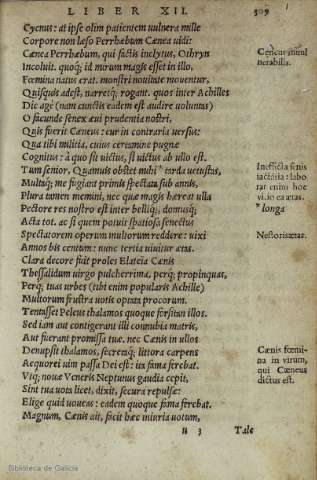 LIBER XII. 309
Cycnus: at ipse olim patientem vulnera mille
Corpore non læso Perrhæbum Cænea uidi:
Cænea Perrhæbum, qui factis inclytus, Othryn
Incoluit. quoq; id mirum magis esset in illo,
Fœmina natus erat. monstri nouitate mouentur,
Quisquis adest, narretq; rogant. quos inter Achilles
Dic age (nam cunctis eadem est audire uoluntas)
O facunde senex æui prudentia nostri,
Quis fuerit Cæneus: cur in contraria uersus:
Qua tibi militia, cuius certamine pugnæ
Cognitus: à quo sit uictus, si uictus ab ullo est.
Tum senior, Quamuis obstet mihi tarda uetustas,
Multaq; me fugiant primis spectata sub annis,
Plura tamen memini, nec quæ magis hæreat ulla
Pectore res nostro est inter belliq; domusq;
Acta tot. ac si quem potuit spatiosa senectus
Spectatorem operum multorum reddere: uixi
Annos bis centum: nunc tertia uiuitur ætas.
Clara decore fuit proles Elateïa Cænis
Thessalidum uirgo pulcherrima, perq; propinquas,
Perq; tuas urbes (tibi enim popularis Achille)
Multorum frustra uotis optata procorum.
Tentasset Peleus thalamos quoque forsitan illos.
Sed iam aut contigerant illi connubia matris,
Aut fuerant promissa tuæ. nec Cænis in ullos
Denupsit thalamos, secretaq; littora carpens
Aequorei uim passa Dei est: ita fama ferebat.
Vtq; nouæ Veneris Neptunus gaudia cepit,
Sint tua uota licet, dixit, secura repulsæ:
Elige quid uoueas: eadem quoque fama ferebat.
Magnum, Cænis ait, facit hæc iniuria uotum,
u 3 Tale
Cæneus inuul
nerabilis.
senis
iactātia: labo
rat enim hoc
vi.
longa
Nestoris ætas.
Cænis fœmi-
na in virum,
qui Cæneus
dictus est.
Biblioteca de Galicia